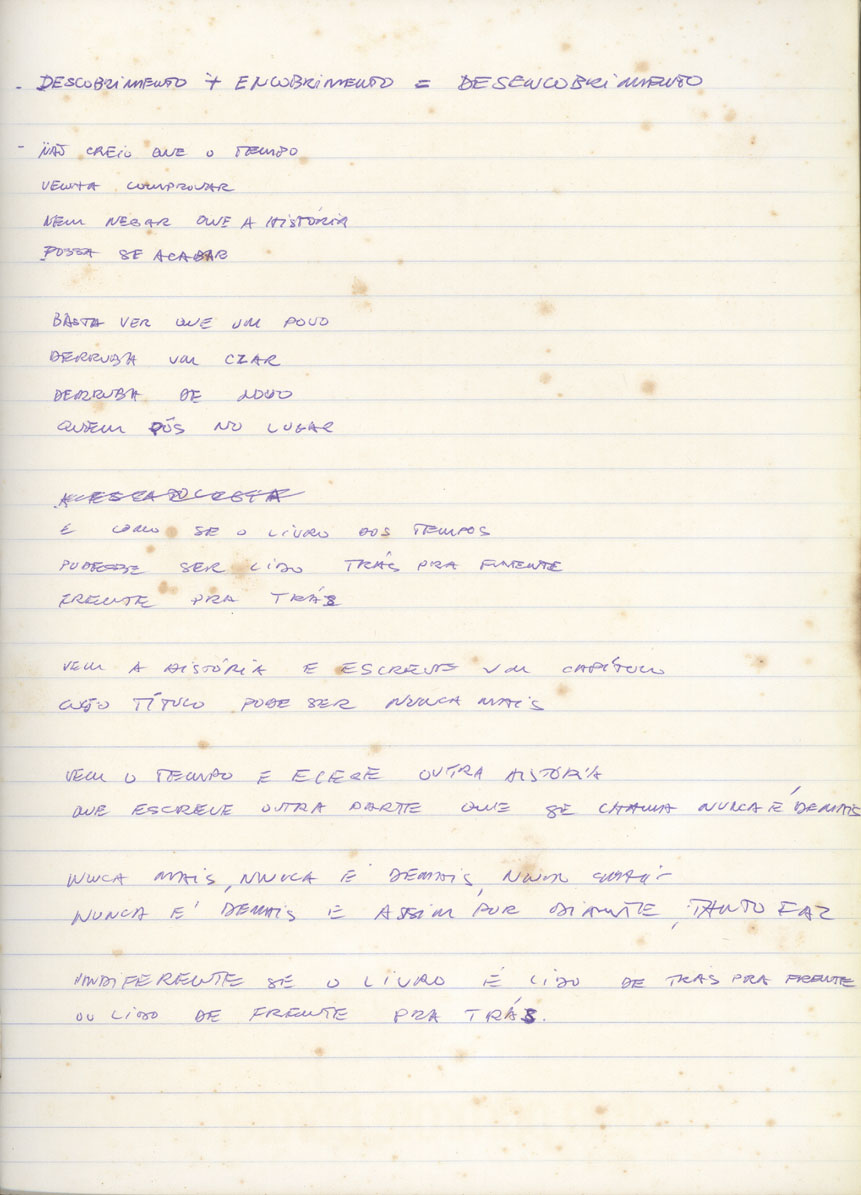 - DESCOBRIMENTO + ENCOBRIMENTO = DESENCOBRIMENTO
- NÃO CREIO QUE O TEMPO
VENHA COMPROVAR
NEM NEGAR QUE A HISTÓRIA
POSSA SE ACABAR
BASTA VER QUE UM POVO
DERRUBA UM CZAR
DERRUBA DE NOVO
QUEM PÔS NO LUGAR
É COMO SE O LIVRO DOS TEMPOS
PUDESSE SER LIDO TRÁS PRA FRENTE
FRENTE PRA TRÁS
VEM A HISTÓRIA E ESCREVE UM CAPÍTULO
CUJO TÍTULO PODE SER NUNCA MAIS
VEM O TEMPO E ELEGE OUTRA HISTÓRIA
QUE ESCREVE OUTRA PARTE QUE SE CHAMA NUNCA É DEMAIS
NUNCA MAIS, NUNCA É DEMAIS, NUNCA MAIS
NUNCA É DEMAIS E ASSIM POR DIANTE, TANTO FAZ
INDIFERENTE SE O LIVRO É LIDO DE TRÁS PRA FRENTE
OU LIDO DE FRENTE PRA TRÁS.